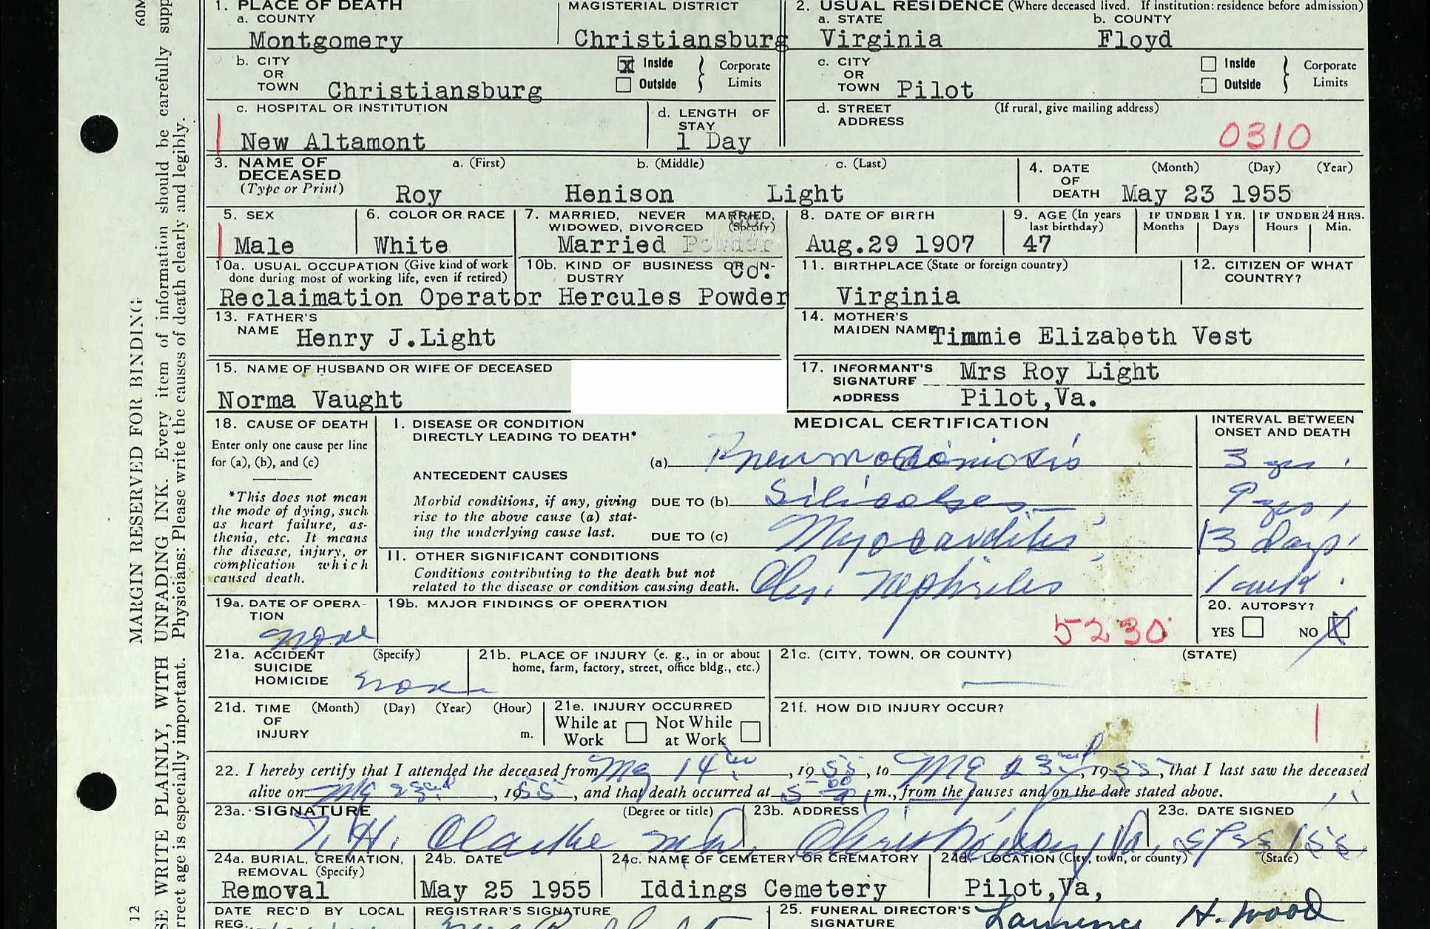 60M
MARGIN RESERVED FOR BINDING
SE WRITE PLAINLY, WITH UNFADING INK. Every item of information should be carefully supp
rrect age is especially important. Physicians: Please write the causes of death clearly and legibly.
12
1. PLACE OF DEATH MAGISTERIAL DISTRICT 2. USUAL RESIDENCE (Where deceased lived. If institution: residence before admission)
a. COUNTY a. STATE b. COUNTY
Montgomery Christiansburg Virginia Floyd
b. CITY OR TOWN Christiansburg Inside Outside Corporate Limits c. CITY OR TOWN Pilot Inside Outside Corporate Limits
c. HOSPITAL OR INSTITUTION d. LENGTH OF STAY d. STREET ADDRESS (If rural, give mailing address)
New Altamont 1 Day 0310
3. NAME OF DECEASED (Type or Print) a. (First) b. (Middle) c. (Last) 4. DATE OF DEATH (Month) (Day) (Year)
Roy Henison Light May 23 1955
5. SEX 6. COLOR OR RACE 7. MARRIED, NEVER MARRIED, WIDOWED, DIVORCED (Specify) 8. DATE OF BIRTH 9. AGE (In years last birthday) IF UNDER 1 YR. Months Days IF UNDER 24 HRS. Hours Min.
Male White Married Powder Aug.29 1907 47
10a. USUAL OCCUPATION (Give kind of work done during most of working life, even if retired) 10b. KIND OF BUSINESS OR INDUSTRY Co. 11. BIRTHPLACE (State or foreign country) 12. CITIZEN OF WHAT COUNTRY?
Reclaimation Operator Hercules Powder Virginia
13. FATHER'S NAME Henry J.Light 14. MOTHER'S MAIDEN NAME Timmie Elizabeth Vest
15. NAME OF HUSBAND OR WIFE OF DECEASED 17. INFORMANT'S SIGNATURE Mrs Roy Light
Norma Vaught ADDRESS Pilot,Va.
18. CAUSE OF DEATH I. DISEASE OR CONDITION DIRECTLY LEADING TO DEATH* MEDICAL CERTIFICATION INTERVAL BETWEEN ONSET AND DEATH
Enter only one cause per line for (a), (b), and (c)
(a) Pneumoconiosis 3 yrs.
*This does not mean the mode of dying, such as heart failure, asthenia, etc. It means the disease, injury, or complication which caused death.
ANTECEDENT CAUSES
Morbid conditions, if any, giving rise to the above cause (a) stating the underlying cause last.
DUE TO (b) 9 yrs.
DUE TO (c) Myocarditis 13 days
II. OTHER SIGNIFICANT CONDITIONS
Conditions contributing to the death but not related to the disease or condition causing death. Nephritis
19a. DATE OF OPERATION 19b. MAJOR FINDINGS OF OPERATION 20. AUTOPSY?
none 5230 YES NO X
21a. ACCIDENT SUICIDE HOMICIDE (Specify) 21b. PLACE OF INJURY (e. g., in or about home, farm, factory, street, office bldg., etc.) 21c. (CITY, TOWN, OR COUNTY) (STATE)
21d. TIME OF INJURY (Month) (Day) (Year) (Hour) m. 21e. INJURY OCCURRED While at Work Not While at Work 21f. HOW DID INJURY OCCUR?
22. I hereby certify that I attended the deceased from 14, 1955, to 23rd, 1955, that I last saw the deceased
alive on 23rd, 1955, and that death occurred at 5 m., from the causes and on the date stated above.
23a. SIGNATURE (Degree or title) 23b. ADDRESS 23c. DATE SIGNED
H. Clarke
24a. BURIAL, CREMATION, REMOVAL (Specify) 24b. DATE 24c. NAME OF CEMETERY OR CREMATORY 24d. LOCATION (City, town, or county) (State)
Removal May 25 1955 Iddings Cemetery Pilot,Va,
DATE REC'D BY LOCAL REG. REGISTRAR'S SIGNATURE 25. FUNERAL DIRECTOR'S SIGNATURE H. Wood